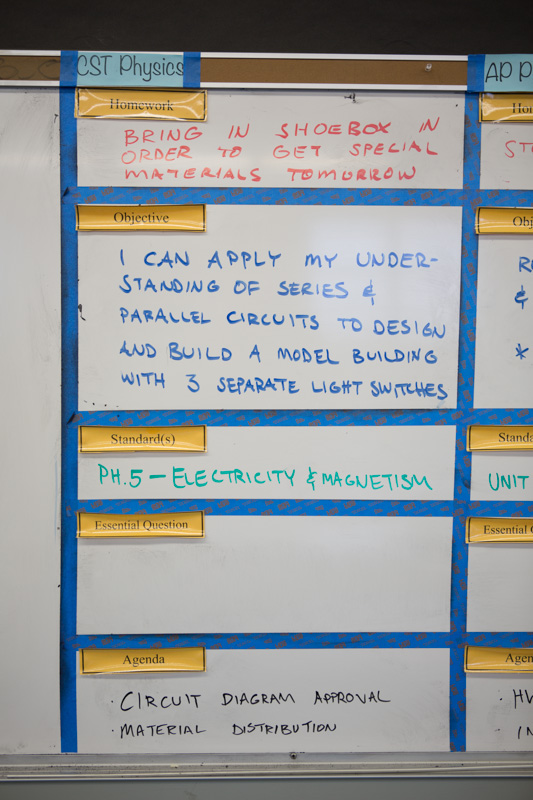 CST Physics
Homework
BRING IN SHOEBOX IN
ORDER TO GET SPECIAL
MATERIALS TOMORROW
Objective
I CAN APPLY MY UNDER-
STANDING OF SERIES &
PARALLEL CIRCUITS TO DESIGN
AND BUILD A MODEL BUILDING
WITH 3 SEPARATE LIGHT SWITCHES
Standard(s)
PH.5 - ELECTRICITY & MAGNETISM
Essential Question
Agenda
· CIRCUIT DIAGRAM APPROVAL
· MATERIAL DISTRIBUTION
AP P
Ho
ST
Obj
R
&
*
Standa
UNIT
Essential
Agen
· HW
· IN